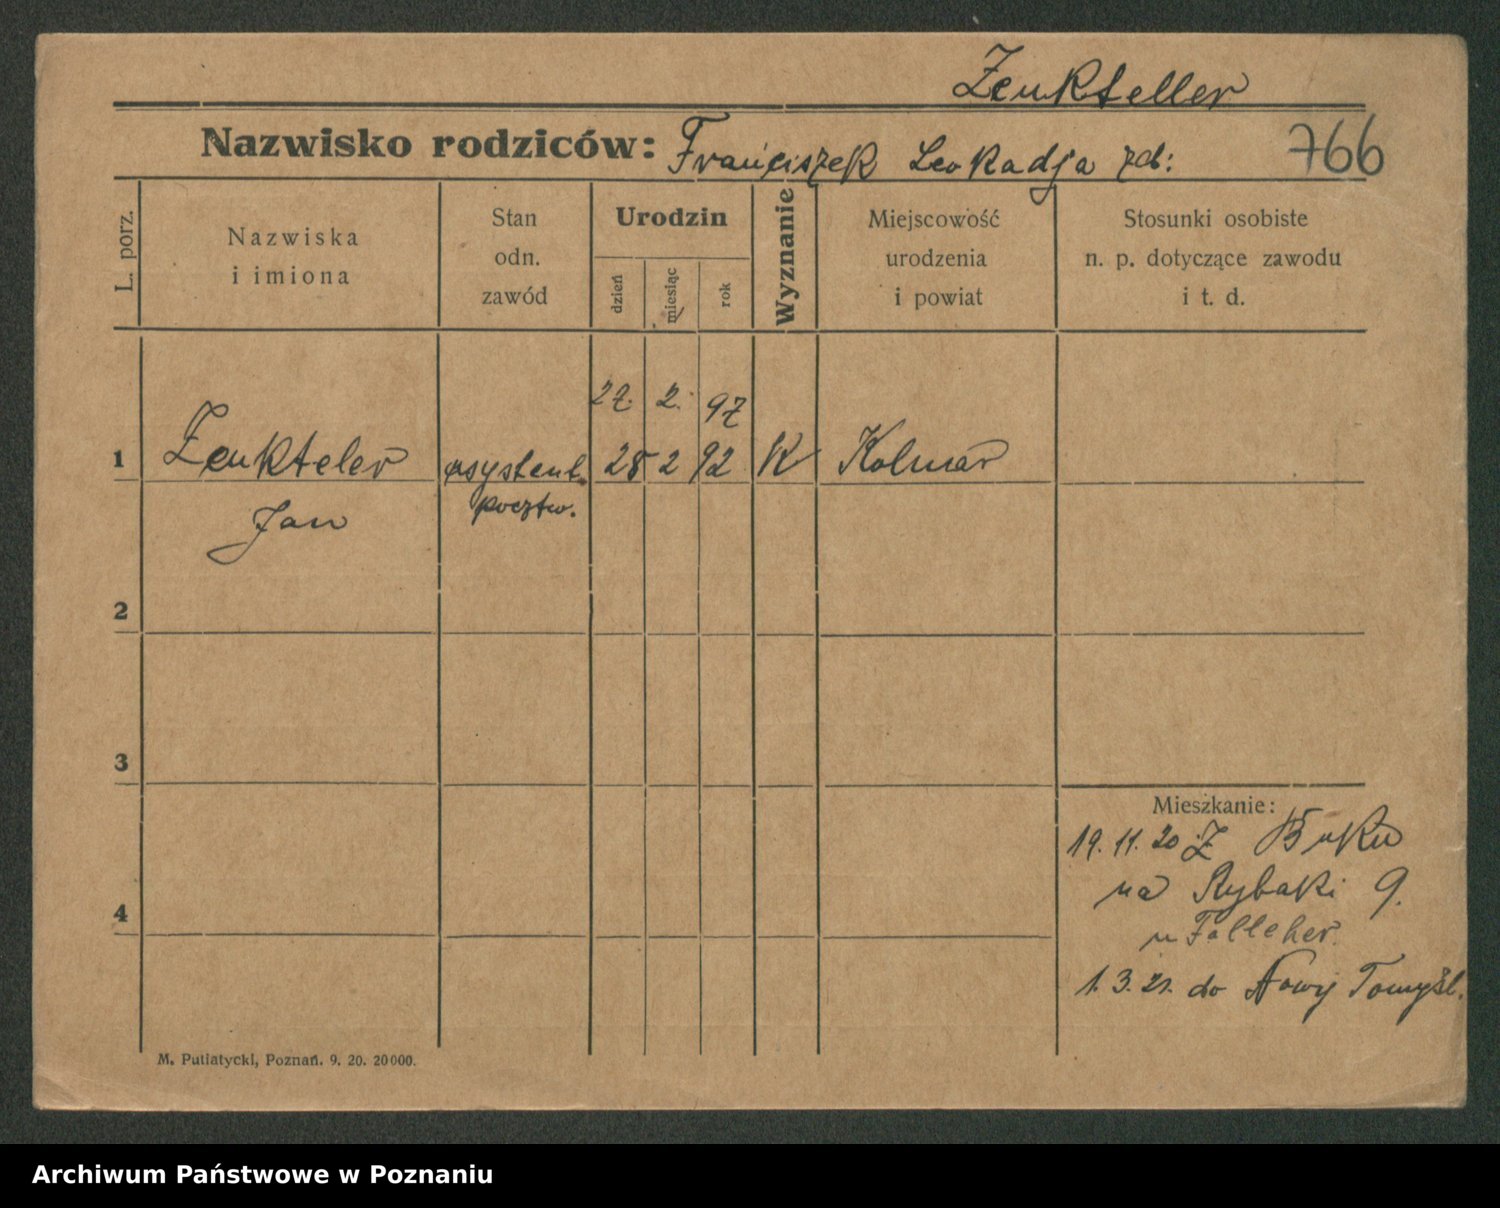 Zenkteller
Nazwisko rodziców: Franciszek Leokadja zd: 766
L. porz.
Nazwiska
i imiona
Stan
odn.
zawód
Urodzin
dzień
miesiąc
rok
Wyznanie
Miejscowość
urodzenia
i powiat
Stosunki osobiste
n. p. dotyczące zawodu
i t. d.
27. 2. 97
1 Zenkteler asystent 28 2 92 K Kolmar
Jan pocztw.
2
3
4
Mieszkanie:
19. 11. 20 Z Buku
na Rybaki 9.
u
1. 3. 21. do Nowy Tomyśl.
M. Putiatycki, Poznań. 9. 20. 20000.
Archiwum Państwowe w Poznaniu